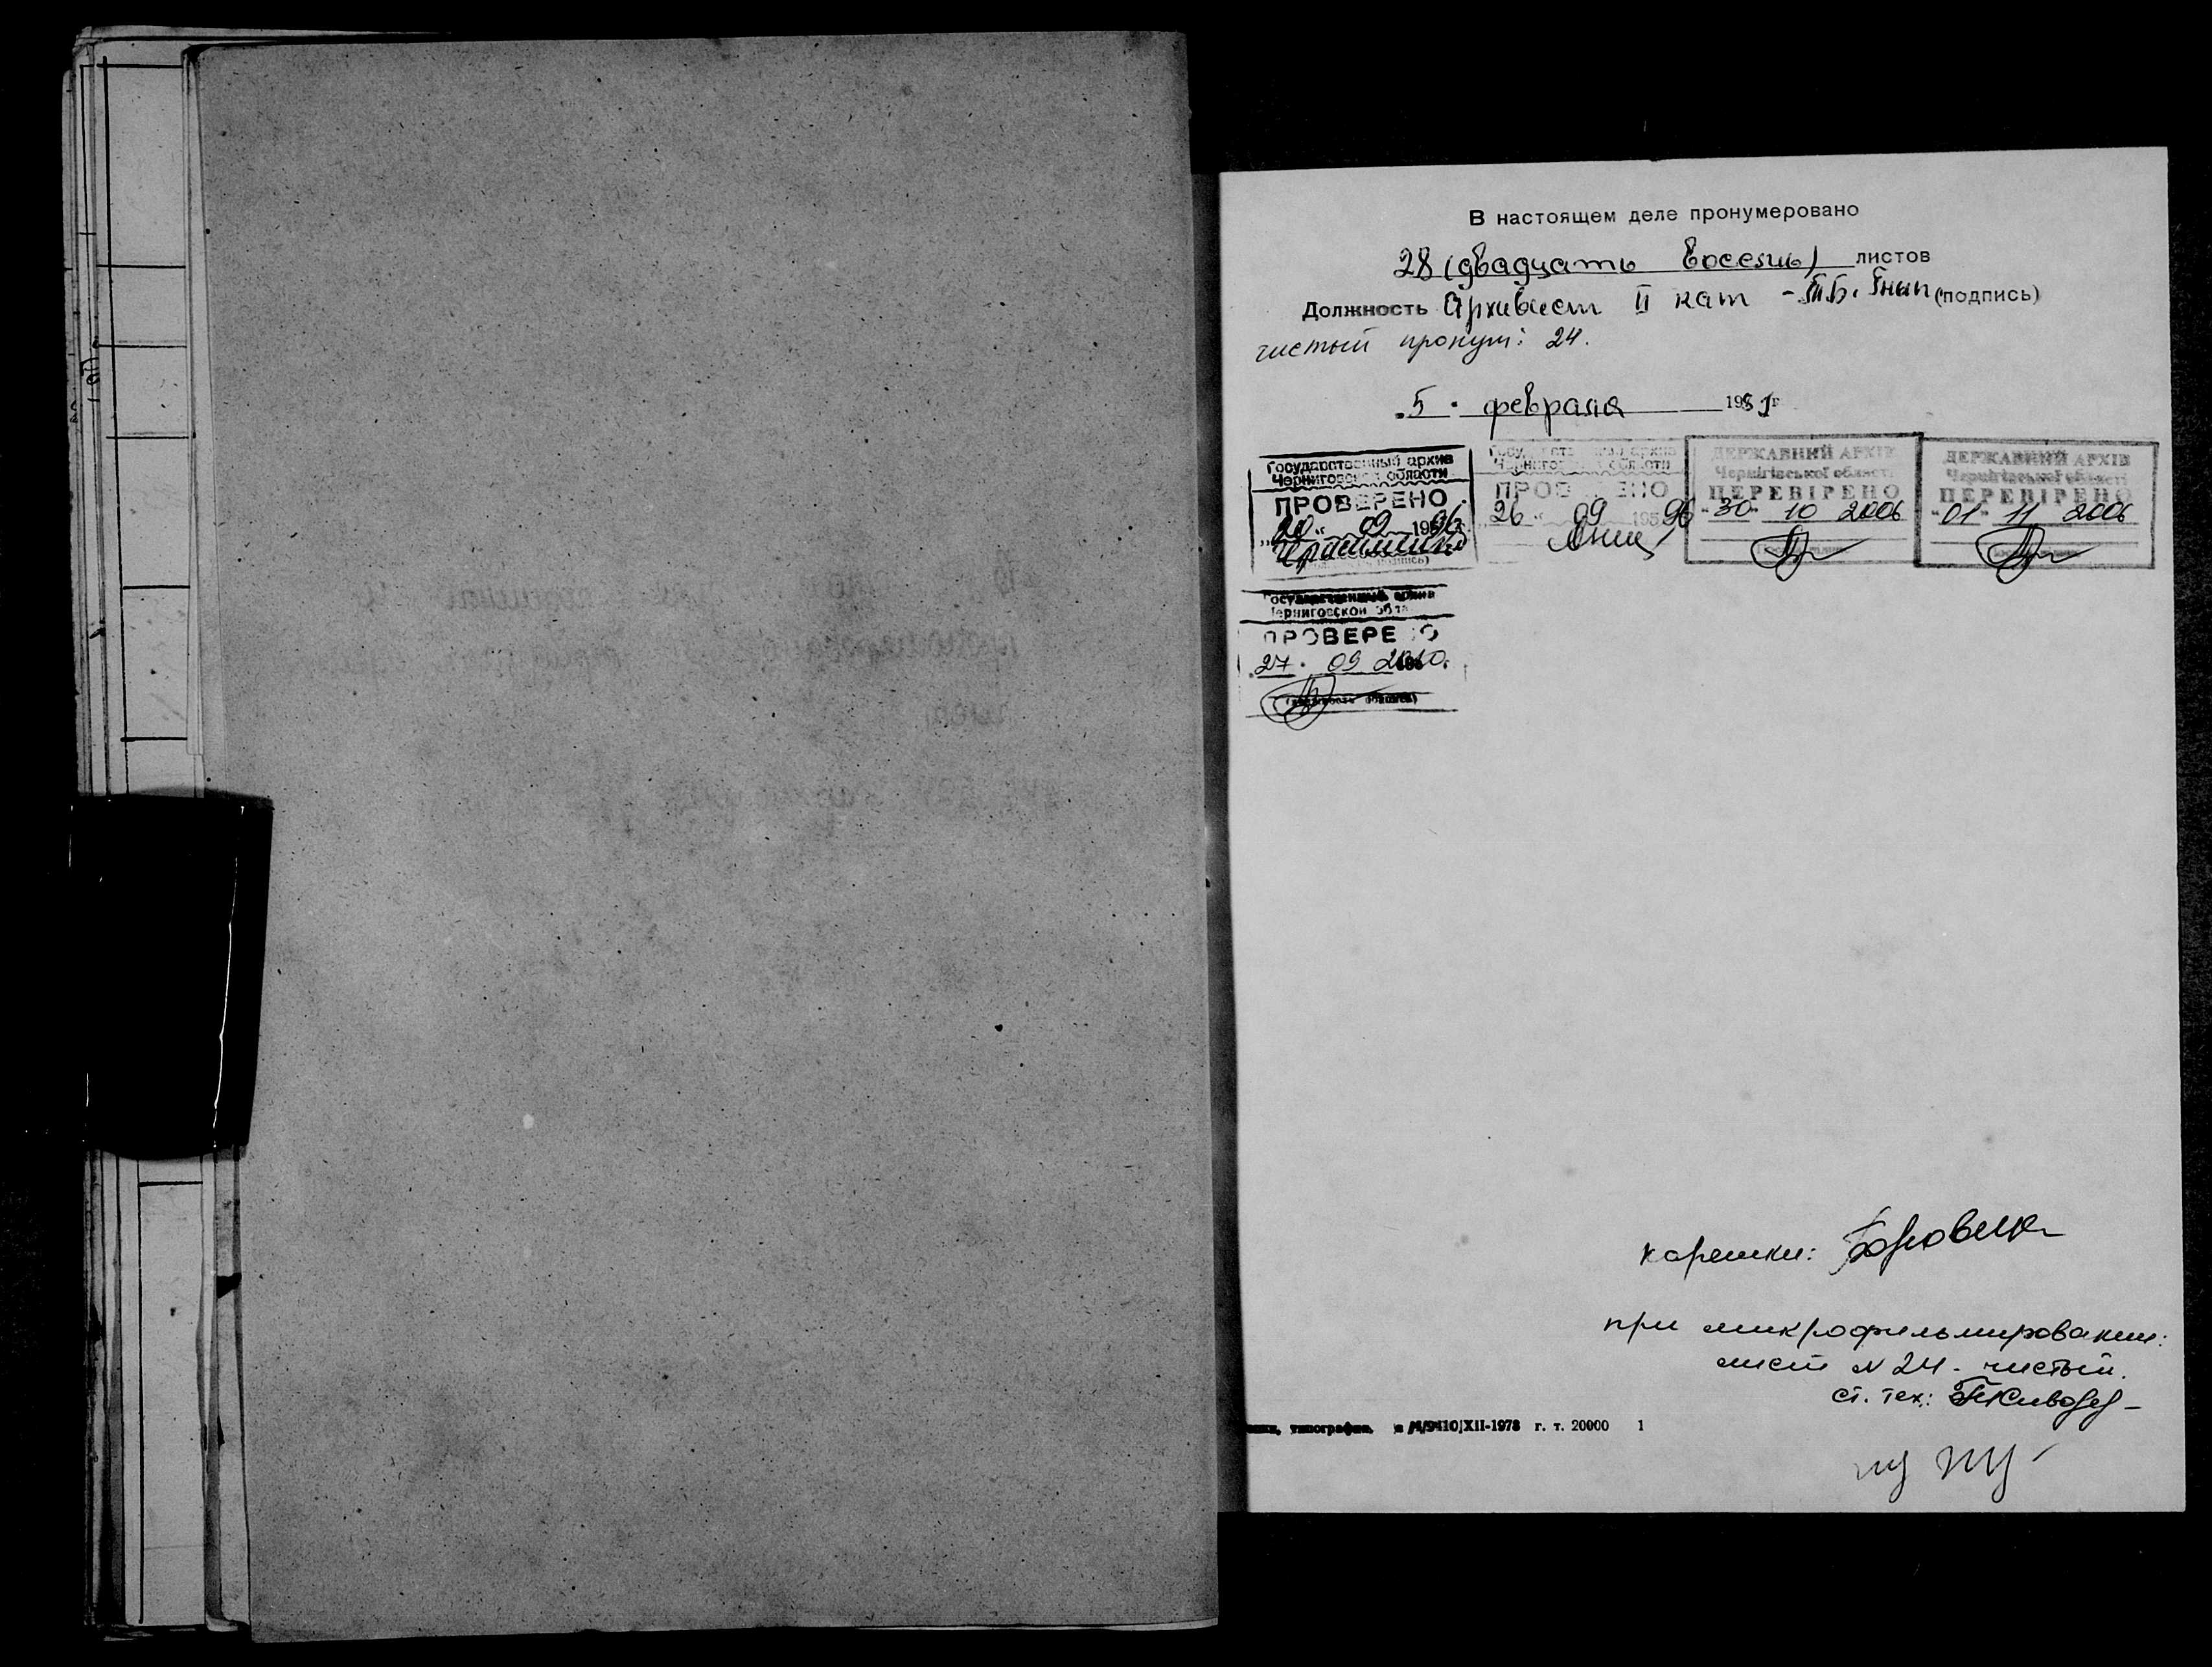 В настоящем деле пронумеровано
28 (двадцать восемь) листов
Должность Архивист II кат - Т.Б. Гнып (подпись)
чистый пронум: 24.
"5" февраля 19 г
Государственный архив
Черниговской области
ПРОВЕРЕНО
"20" 09 1996
Государственный архив
Черниговской области
ПРОВЕРЕНО
26 " 09 1996
ДЕРЖАВНИЙ АРХІВ
Чернігівської області
ПЕРЕВІРЕНО
"30" 10 2006
ДЕРЖАВНИЙ АРХІВ
Чернігівської області
ПЕРЕВІРЕНО
"01" 11 2006
Государственный архив
Черниговской обла
ПРОВЕРЕНО
"27" 09 2010.
корешки:
при микрофильмировании:
лист N 24 - чистый.
ст. тех:
типография. XII-1978 г. т. 20000 1